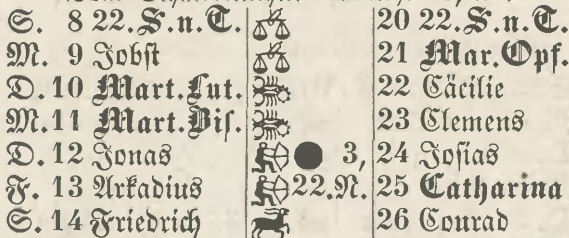 S. 8 22.S.n.T. 20 22.S.n.T.
M. 9 Jobst 21 Mar.Opf.
D. 10 Mart.Lut. 22 Cäcilie
M. 11 Mart.Bis. 23 Clemens
D. 12 Jonas 3, 24 Josias
F. 13 Arkadius 22.N. 25 Catharina
S. 14 Friedrich 26 Conrad